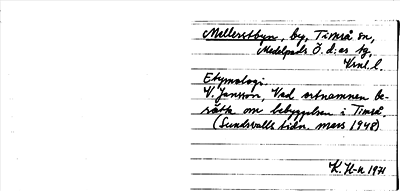 Mellerstbyn, by, Timrå sn,
Medelpads Ö. d:as tg,
Vrnl. l.
Etymologi
V. Jansson, Vad ortnamnen be-
rätta om bebyggelsen i Timrå.
(Sundsvalls tidn. mars 1948)
K. H-n 1971